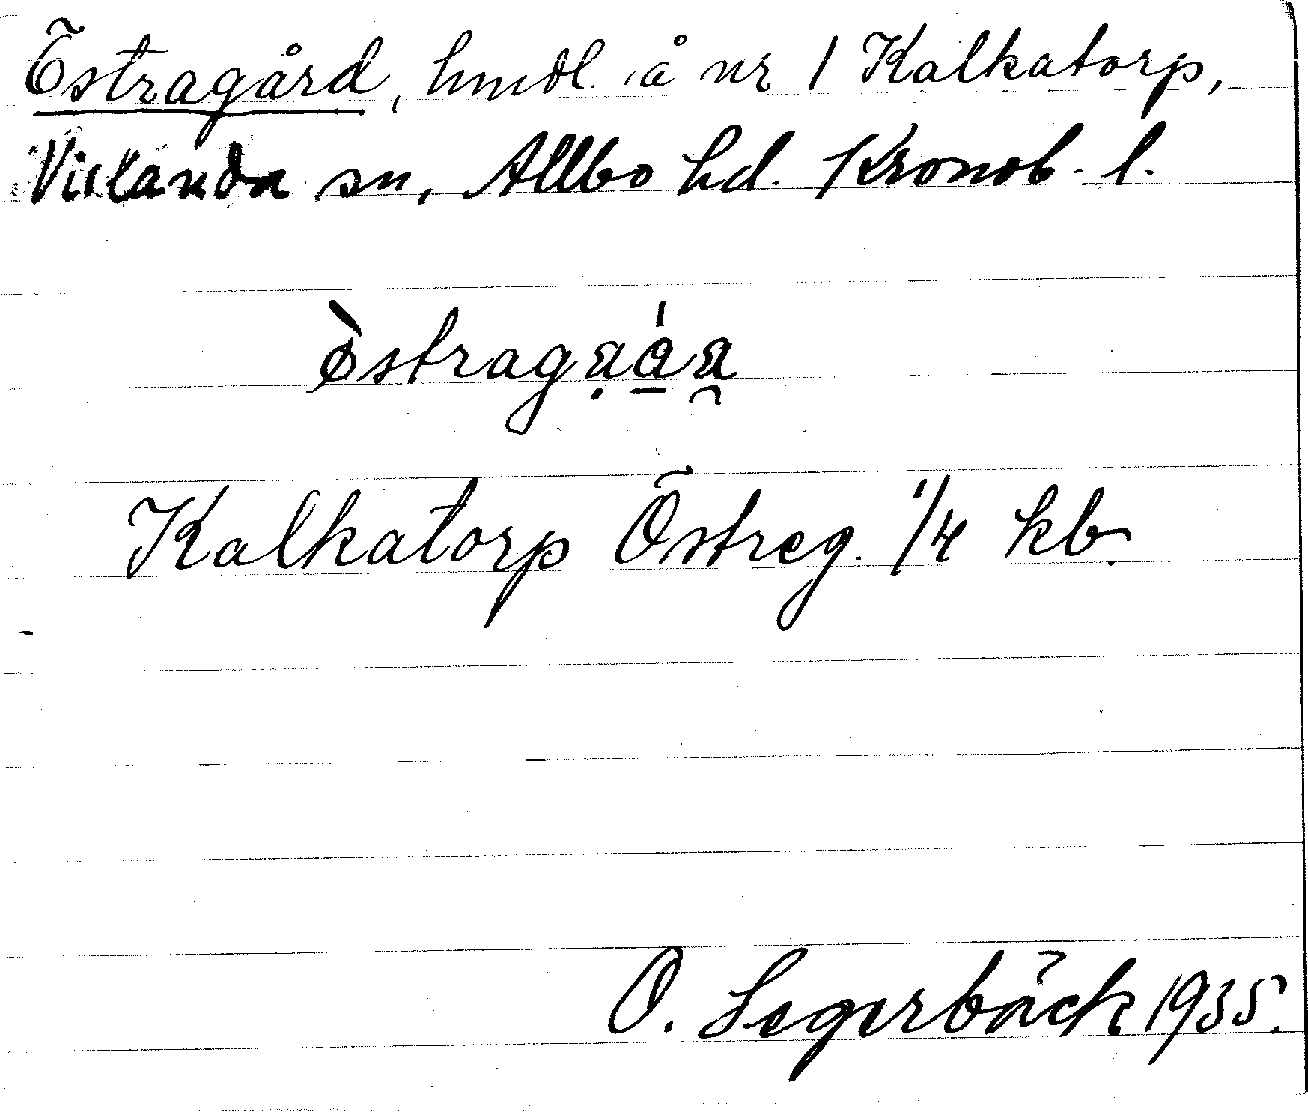 Östragård, hmdl. å nr 1 Kalkatorp,
Vislanda sn, Allbo hd. Kronob. l.
Kalkatorp Östreg. 1/4 kb.
O. Segerbäck 1935.